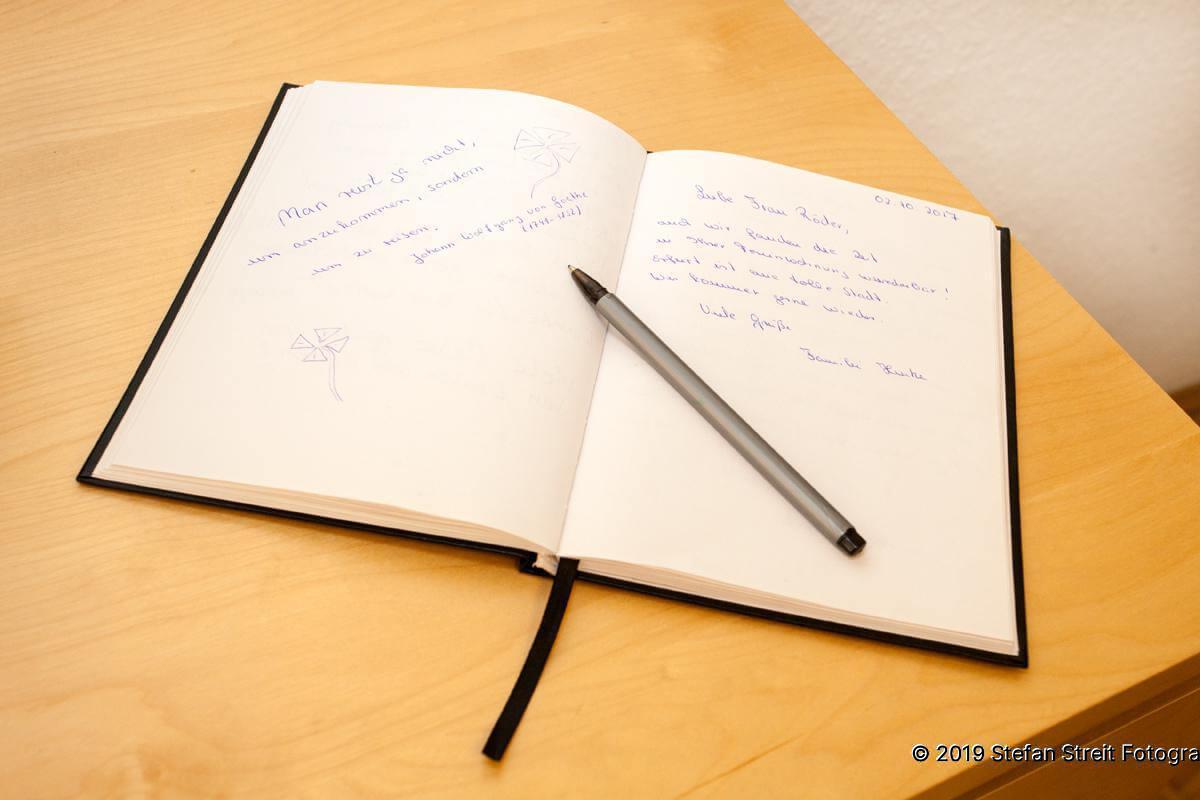 Man reist ja nicht,
um anzukommen, sondern
um zu reisen.
Johann Wolfgang von Goethe
(1749-1832)
02.10.2017
Liebe Frau Röder,
auch wir fanden die Zeit
in Ihrer Ferienwohnung wunderbar!
Erfurt ist eine tolle Stadt.
Wir kommen gerne wieder.
Viele Grüße
Familie
© 2019 Stefan Streit Fotogra